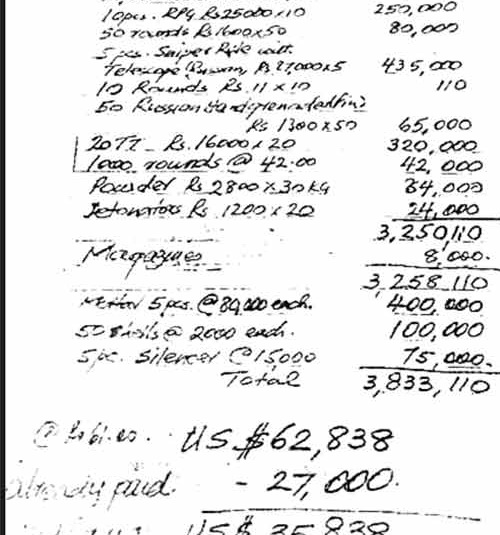 10pcs. RPG Rs 25000x10 250,000
50 rounds Rs 1600x50 80,000
5 pcs. Sniper Rifle with
Telescope (Russian) Rs 87,000x5 435,000
10 Rounds Rs. 11 x 10 110
50 Russian Handgrenade
Rs 1300x50 65,000
20 TT - Rs. 16000 x 20 320,000
1000 rounds @ 42.00 42,000
Powder Rs 2800 x 30 kg 84,000
Detonators Rs 1200 x 20 24,000
3,250,110
Magazines 8,000.
3,258,110
5 pcs. @ 80,000 each. 400,000
50 Shells @ 2000 each. 100,000
5 pc. Silencer @ 15,000 75,000.
Total 3,833,110
@ Rs 61.00. US $62,838
already paid. - 27,000.
US $ 35,838